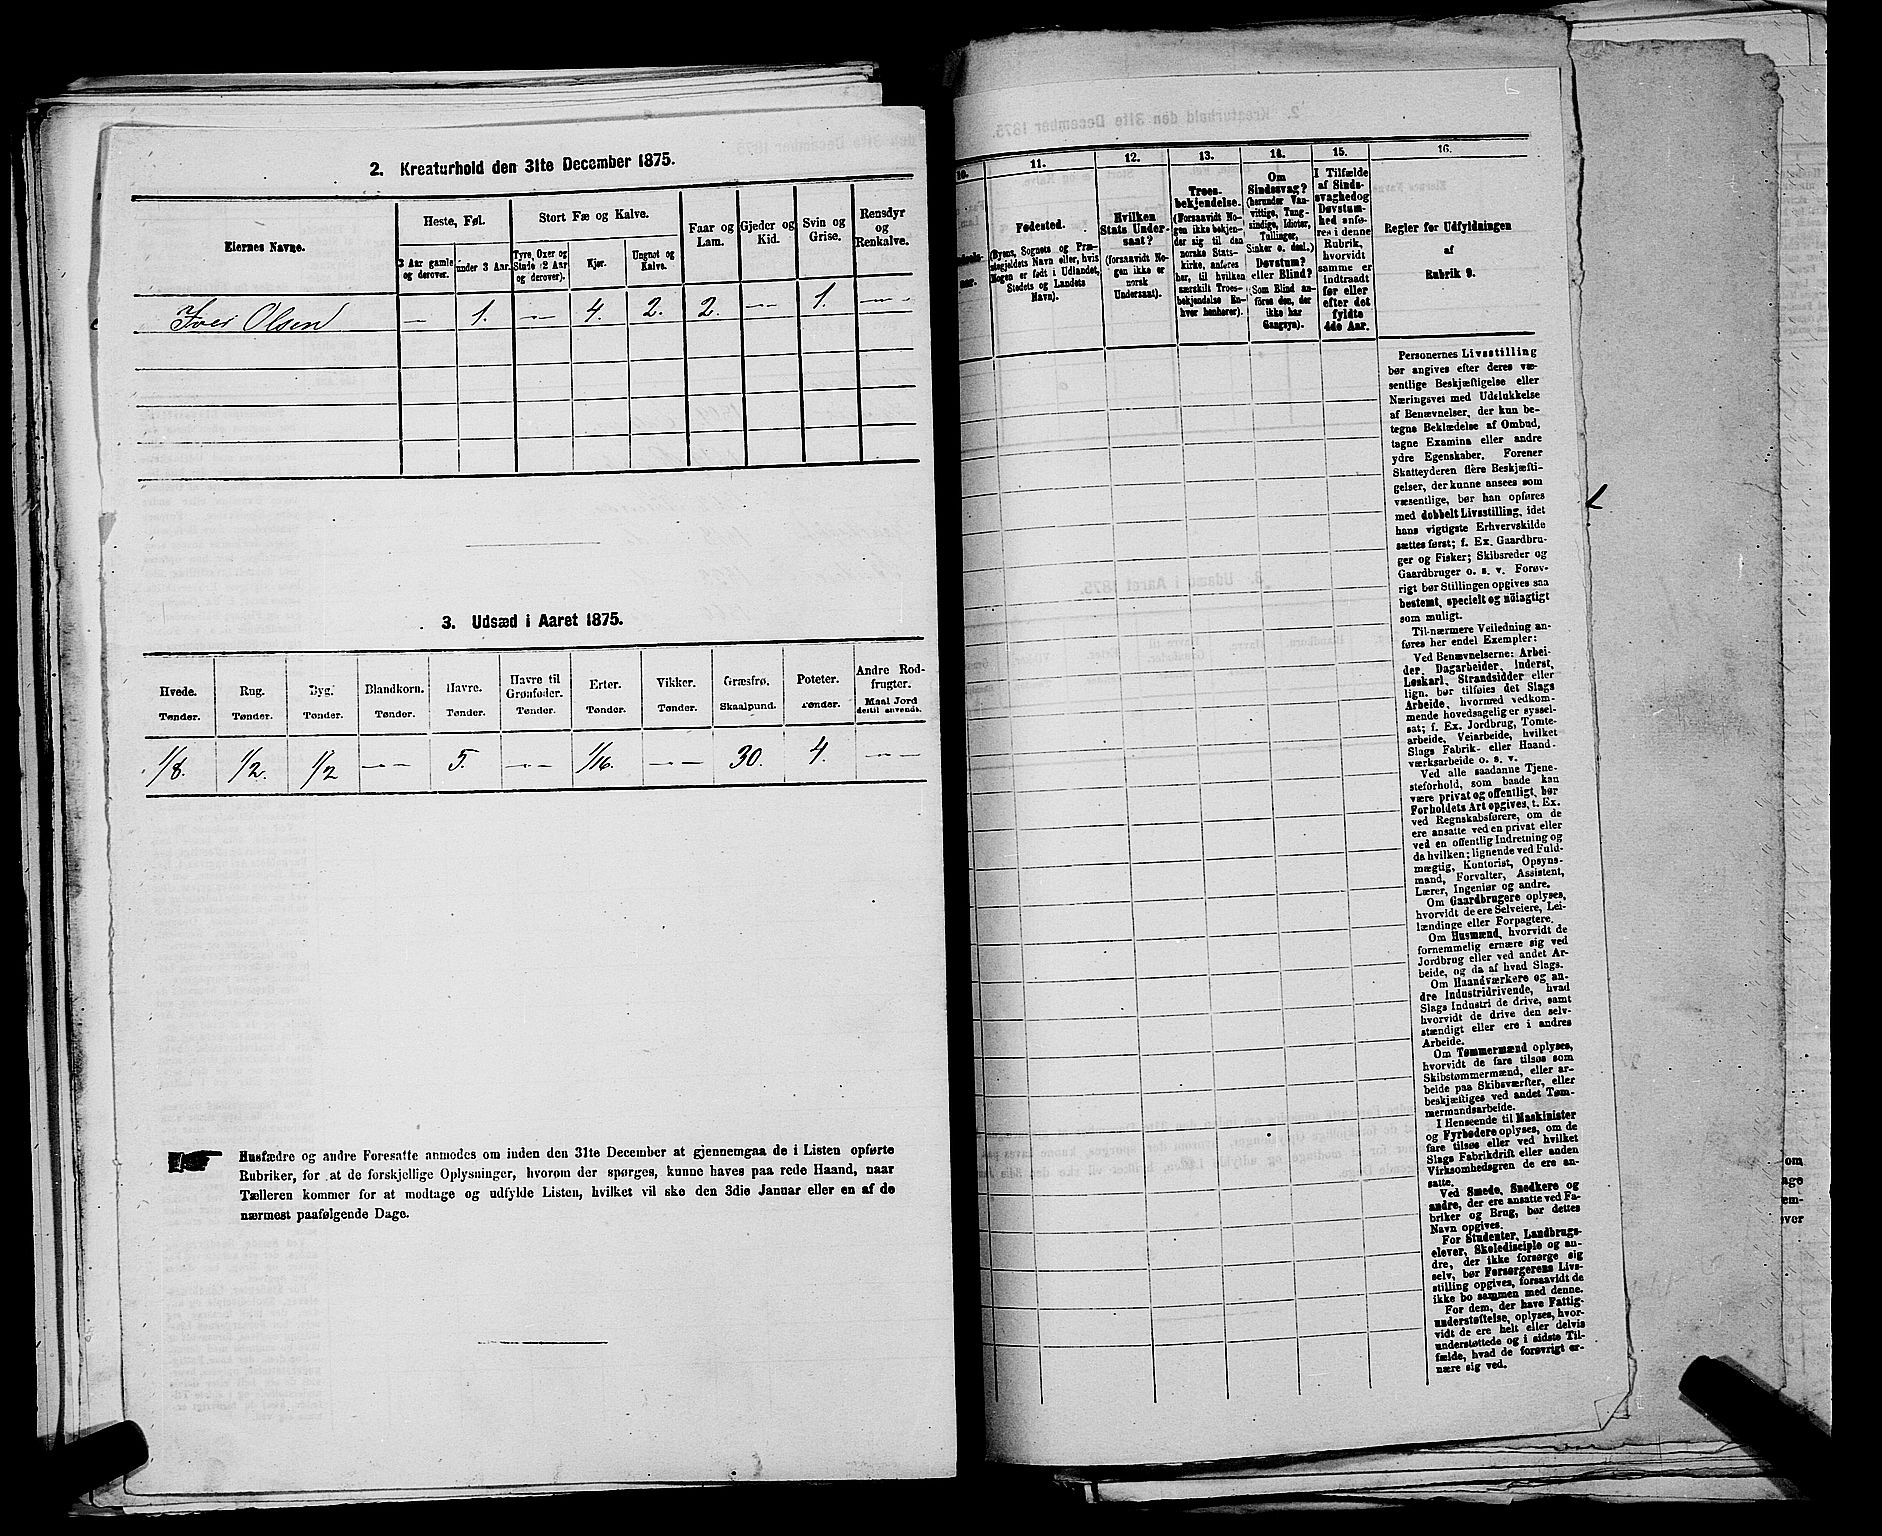 2. Kreaturhold den 31te December 1875.
Eiernes Navne.
Heste, Føl.
3 Aar gamle og derover.
under 3 Aar.
Stort Fæ og Kalve.
Tyre, Oxer og Stude (2 Aar og derover).
Kjør.
Ungnøt og Kalve.
Faar og Lam.
Gjeder og Kid.
Svin og Grise.
Rensdyr og Renkalve.
Iver Olsen — 1. — 4. 2. 2. — 1. —
3. Udsæd i Aaret 1875.
Hvede. Rug. Byg. Blandkorn. Havre. Havre til Grønfoder. Erter. Vikker. Græsfrø. Poteter. Andre Rodfrugter.
Tønder. Tønder. Tønder. Tønder. Tønder. Tønder. Tønder. Tønder. Skaalpund. Tønder. Maal Jord dertil anvendt.
1/8. 1/2. 1/2 — 5. — 1/16. — 30. 4. —
Husfædre og andre Foresatte anmodes om inden den 31te December at gjennemgaa de i Listen opførte
Rubriker, for at de forskjellige Oplysninger, hvorom der spørges, kunne haves paa rede Haand, naar
Tælleren kommer for at modtage og udfylde Listen, hvilket vil ske den 3die Januar eller en af de
nærmest paafølgende Dage.
10.
11.
Fødested.
(Byens, Sognets og Præstegjeldets Navn eller, hvis Nogen er født i Udlandet, Stedets og Landets Navn).
12.
Hvilken Stats Undersaat?
(forsaavidt Nogen ikke er norsk Undersaat).
13.
Troesbekjendelse.
(Forsaavidt Nogen ikke bekjender sig til den norske Statskirke, anføres her, til hvilken særskilt Troesbekjendelse Enhver henhører).
14.
Om Sindssvag?
(herunder Vanvittige, Tungsindige, Idioter, Tullinger, Sinker o. desl.)
Døvstum? eller Blind?
(Som Blind anføres den, der ikke har Gangsyn).
15.
I Tilfælde af Sindssvaghed og Døvstumhed anføres i denne Rubrik, hvorvidt samme er indtraadt før eller efter det fyldte 4de Aar.
16.
Regler for Udfyldningen
af
Rubrik 9.
Personernes Livsstilling
bør angives efter deres væ-
sentlige Beskjæftigelse eller
Næringsvei med Udelukkelse
af Benævnelser, der kun be-
tegne Beklædelse af Ombud,
tagne Examina eller andre
ydre Egenskaber. Forener
Skatteyderen flere Beskjæfti-
gelser, der kunne ansees som
væsentlige, bør han opføres
med dobbelt Livsstilling, idet
hans vigtigste Erhvervskilde
sættes først; f. Ex. Gaardbru-
ger og Fisker; Skibsreder og
Gaardbruger o. s. v. Forøv-
rigt bør Stillingen opgives saa
bestemt, specielt og nöiagtigt
som muligt.
Til nærmere Veiledning an-
føres her endel Exempler:
Ved Benævnelserne: Arbei-
der, Dagarbeider, Inderst,
Løskarl, Strandsidder eller
lign. bør tilføies det Slags
Arbeide, hvormed vedkom-
mende hovedsagelig er syssel-
sat; f. Ex. Jordbrug, Tomte-
arbeide, Veiarbeide, hvilket
Slags Fabrik- eller Haand-
værksarbeide o. s. v.
Ved alle saadanne Tjene-
steforhold, som baade kan
være privat og offentligt, bør
Forholdets Art opgives, t. Ex.
ved Regnskabsførere, om de
ere ansatte ved en privat eller
ved en offentlig Indretning og
da hvilken; lignende ved Fuld-
mægtig, Kontorist, Opsyns-
mand, Forvalter, Assistent,
Lærer, Ingeniør og andre.
Om Gaardbrugere oplyses,
hvorvidt de ere Selveiere, Lei-
lændinge eller Forpagtere.
Om Husmænd, hvorvidt de
fornemmelig ernære sig ved
Jordbrug eller ved andet Ar-
beide, og da af hvad Slags.
Om Haandværkere og an-
dre Industridrivende, hvad
Slags Industri de drive, samt
hvorvidt de drive den selv-
stændigt eller ere i andres
Arbeide.
Om Tømmermænd oplyses,
hvorvidt de fare tilsøs som
Skibstømmermænd, eller ar-
beide paa Skibsværfter, eller
beskjæftiges ved andet Tøm-
mermandsarbeide.
I Henseende til Maskinister
og Fyrbødere oplyses, om de
fare tilsøs eller ved hvilket
Slags Fabrikdrift eller anden
Virksomhedsgren de ere an-
satte.
Ved Smede, Snedkere og
andre, der ere ansatte ved Fa-
briker og Brug, bør dettes
Navn opgives.
For Studenter, Landbrugs-
elever, Skoledisciple og an-
dre, der ikke forsørge sig
selv, bør Forsørgerens Livs-
stilling opgives, forsaavidt de
ikke bo sammen med denne.
For dem, der have Fattig-
understøttelse, oplyses, hvor-
vidt de ere helt eller delvis
understøttede og i sidste Til-
fælde, hvad de forøvrigt er-
nære sig ved.